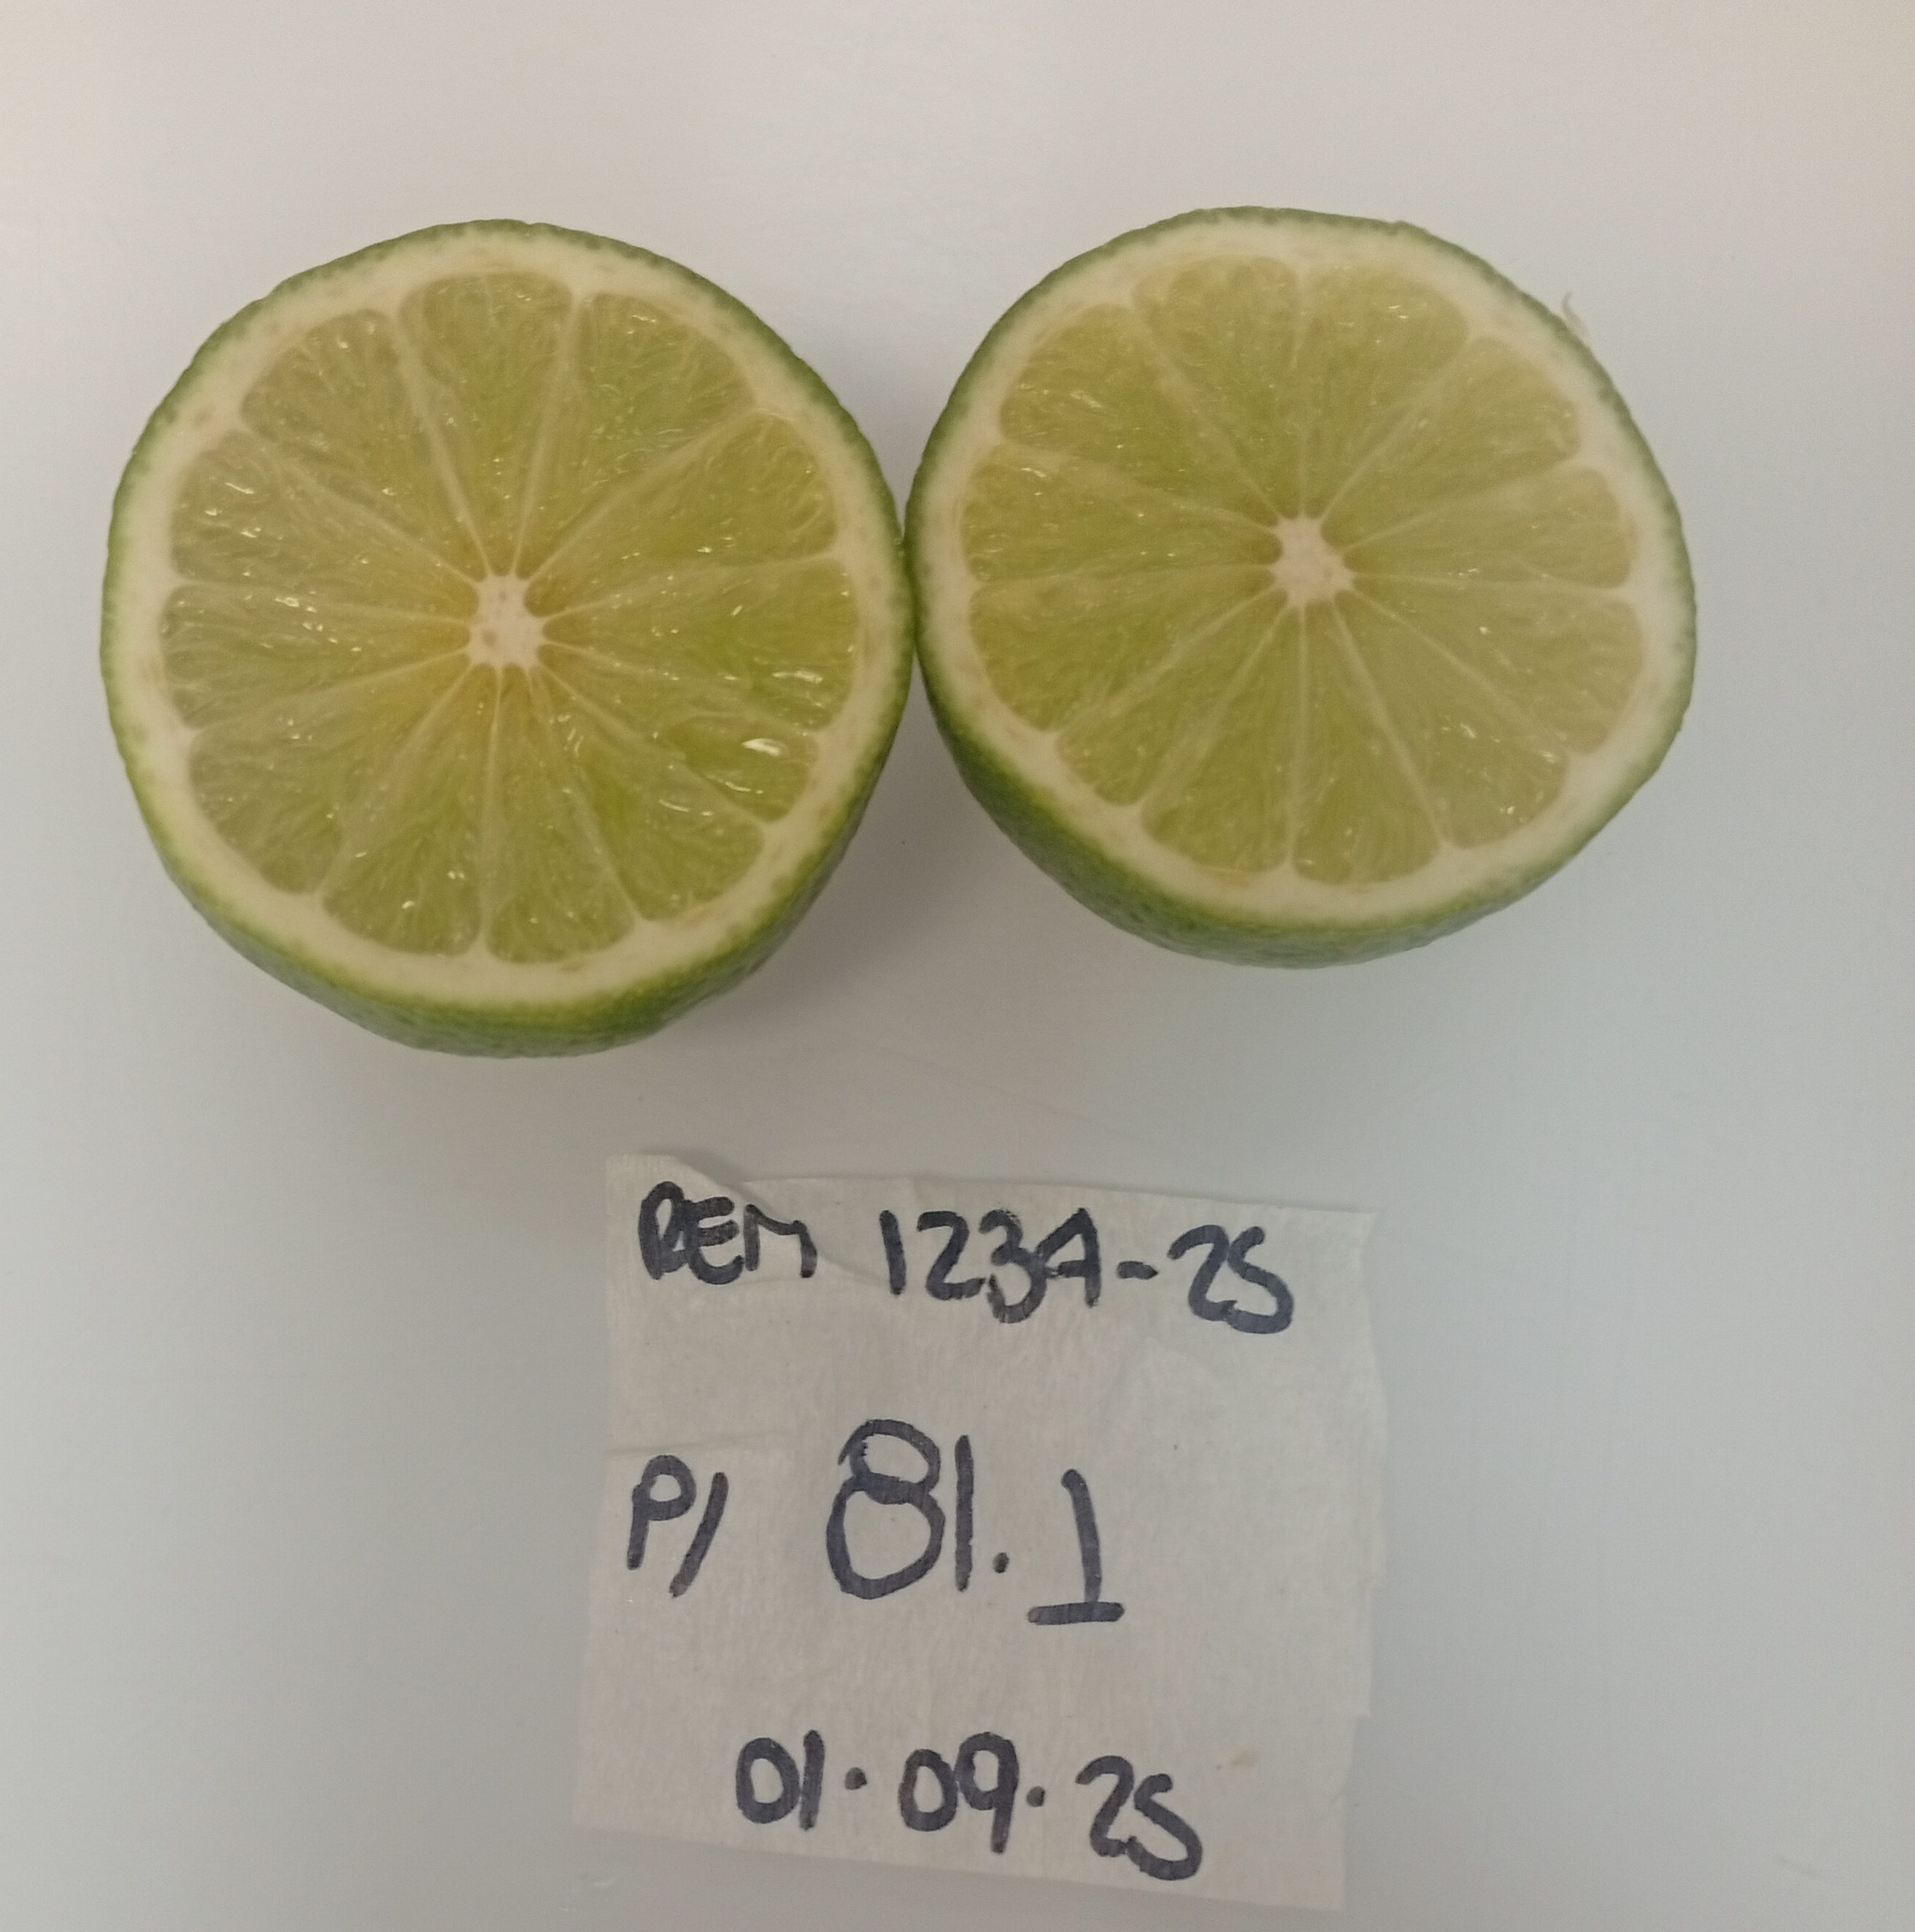 REM 1234-25
P/ 81.1
01.09.25